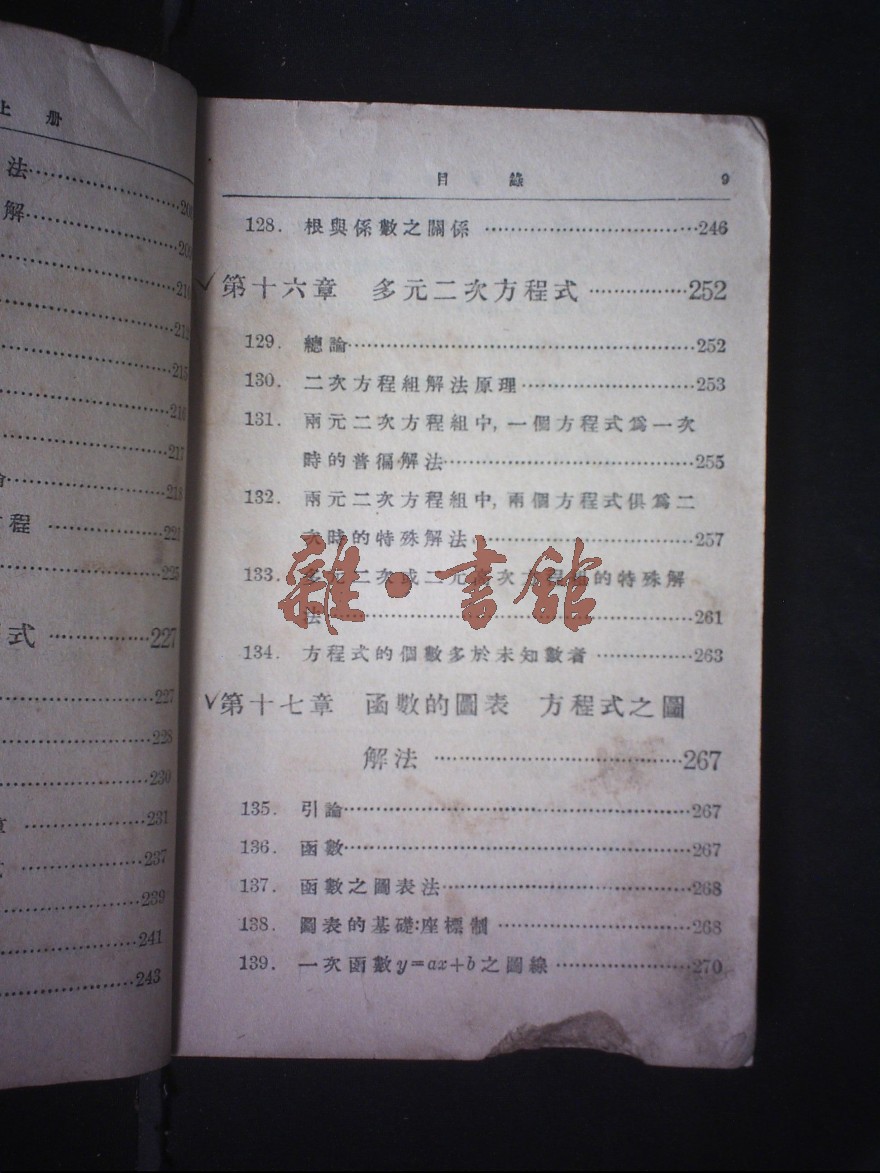 上 册
法…………208
解…………209
…………210
…………212
…………215
…………216
…………217
…………218
程 …………221
…………225
式 …………227
…………227
…………228
…………230
…………231
…………237
…………239
…………241
…………243
目 錄 9
128. 根與係數之關係 …………246
第十六章 多元二次方程式 …………252
129. 總論…………252
130. 二次方程組解法原理…………253
131. 兩元二次方程組中, 一個方程式爲一次
時的普徧解法…………255
132. 兩元二次方程組中, 兩個方程式俱爲二
次時的特殊解法…………257
133. 多元二次或二元高次方程組的特殊解
法…………261
134. 方程式的個數多於未知數者 …………263
第十七章 函數的圖表 方程式之圖
解法 …………267
135. 引論…………267
136. 函數…………267
137. 函數之圖表法…………268
138. 圖表的基礎:座標制 …………268
139. 一次函數y=ax+b之圖線 …………270
雜·書館